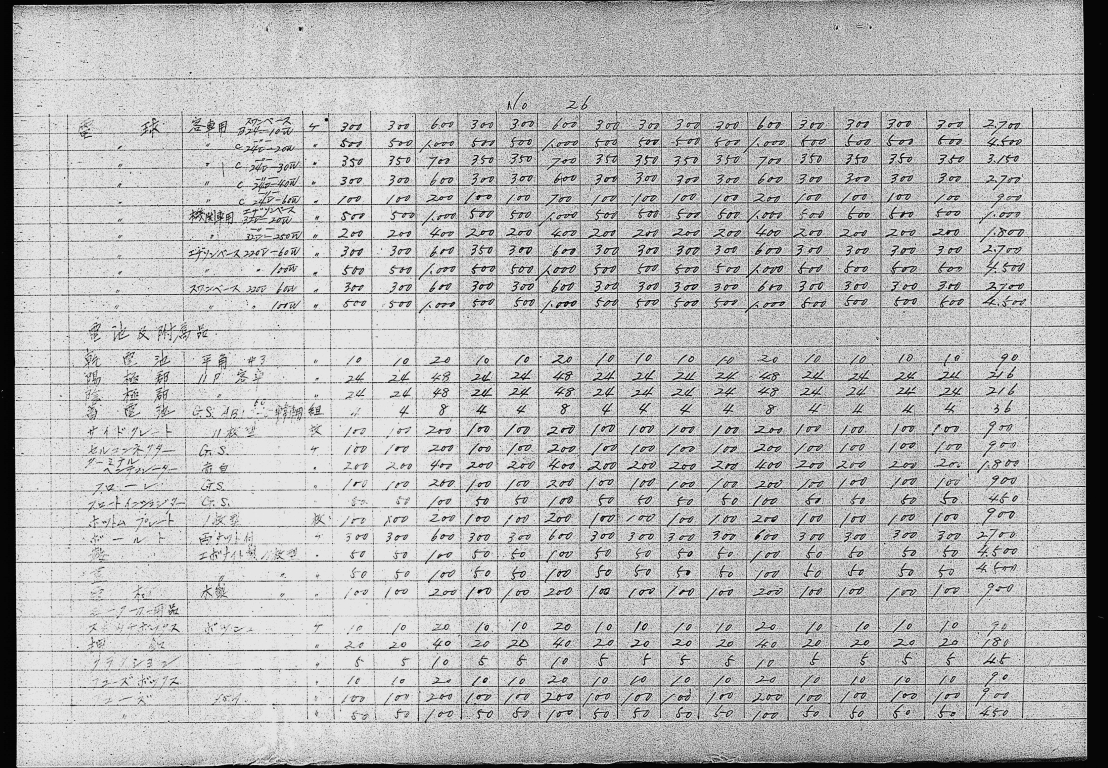 No 26
電球 客車用 スワンベース B 24V-10W ケ 300 300 600 300 300 600 300 300 300 300 600 300 300 300 300 2,700
〃 C 24V-20W 〃 500 500 1,000 500 500 1,000 500 500 500 500 1,000 500 500 500 500 4,500
〃 〃 C 24V-30W 〃 350 350 700 350 350 700 350 350 350 350 700 350 350 350 350 3,150
〃 〃 C 24V-40W 〃 300 300 600 300 300 600 300 300 300 300 600 300 300 300 300 2,700
〃 C 24V-60W 〃 100 100 200 100 100 700 100 100 100 100 200 100 100 100 100 900
〃 機関車用 エヂソンベース 32V-20W 〃 500 500 1,000 500 500 1,000 500 500 500 500 1,000 500 500 500 500 1,000
〃 〃 32V-250W 〃 200 200 400 200 200 400 200 200 200 200 400 200 200 200 200 1,800
〃 エヂソンベース 220V-60W 〃 300 300 600 350 300 600 300 300 300 300 600 300 300 300 300 2,700
〃 〃 100W 〃 500 500 1,000 500 500 1,000 500 500 500 500 1,000 500 500 500 500 4,500
〃 スワンベース 220V 60W 〃 300 300 600 300 300 600 300 300 300 300 600 300 300 300 300 2,700
〃 〃 〃 100W 〃 500 500 1,000 500 500 1,000 500 500 500 500 1,000 500 500 500 500 4,500
電池及附属品
乾電池 平角 #3 〃 10 10 20 10 10 20 10 10 10 10 20 10 10 10 10 90
陽極群 11P 客車 〃 24 24 48 24 24 48 24 24 24 24 48 24 24 24 24 216
陰極群 〃 〃 24 24 48 24 24 48 24 24 24 24 48 24 24 24 24 216
蓄電池 G.S. 組 4 4 8 4 4 8 4 4 4 4 8 4 4 4 4 36
サイドプレート 11枚型 枚 100 100 200 100 100 200 100 100 100 100 200 100 100 100 100 900
セルコンネクター G.S. ケ 100 100 200 100 100 200 100 100 100 100 200 100 100 100 100 900
ターミナル 〃 200 200 400 200 200 400 200 200 200 200 400 200 200 200 200 1,800
フロート G.S. 〃 100 100 200 100 100 200 100 100 100 100 200 100 100 100 100 900
フロートインジケーター G.S. 〃 50 50 100 50 50 100 50 50 50 50 100 50 50 50 50 450
ボットム プレート 11枚型 枚 100 100 200 100 100 200 100 100 100 100 200 100 100 100 100 900
ボールト 両ナット付 〃 300 300 600 300 300 600 300 300 300 300 600 300 300 300 300 2700
エボナイト製 11枚型 〃 50 50 100 50 50 100 50 50 50 50 100 50 50 50 50 4,500
〃 〃 〃 50 50 100 50 50 100 50 50 50 50 100 50 50 50 50 4,500
木製 〃 〃 100 100 200 100 100 200 100 100 100 100 200 100 100 100 100 900
モーターカー用品
ケ 10 10 20 10 10 20 10 10 10 10 20 10 10 10 10 90
〃 20 20 40 20 20 40 20 20 20 20 40 20 20 20 20 180
〃 5 5 10 5 5 10 5 5 5 5 10 5 5 5 5 45
フューズボックス 〃 10 10 20 10 10 20 10 10 10 10 20 10 10 10 10 90
フューズ 10A 〃 100 100 200 100 100 200 100 100 100 100 200 100 100 100 100 900
〃 〃 50 50 100 50 50 100 50 50 50 50 100 50 50 50 50 450